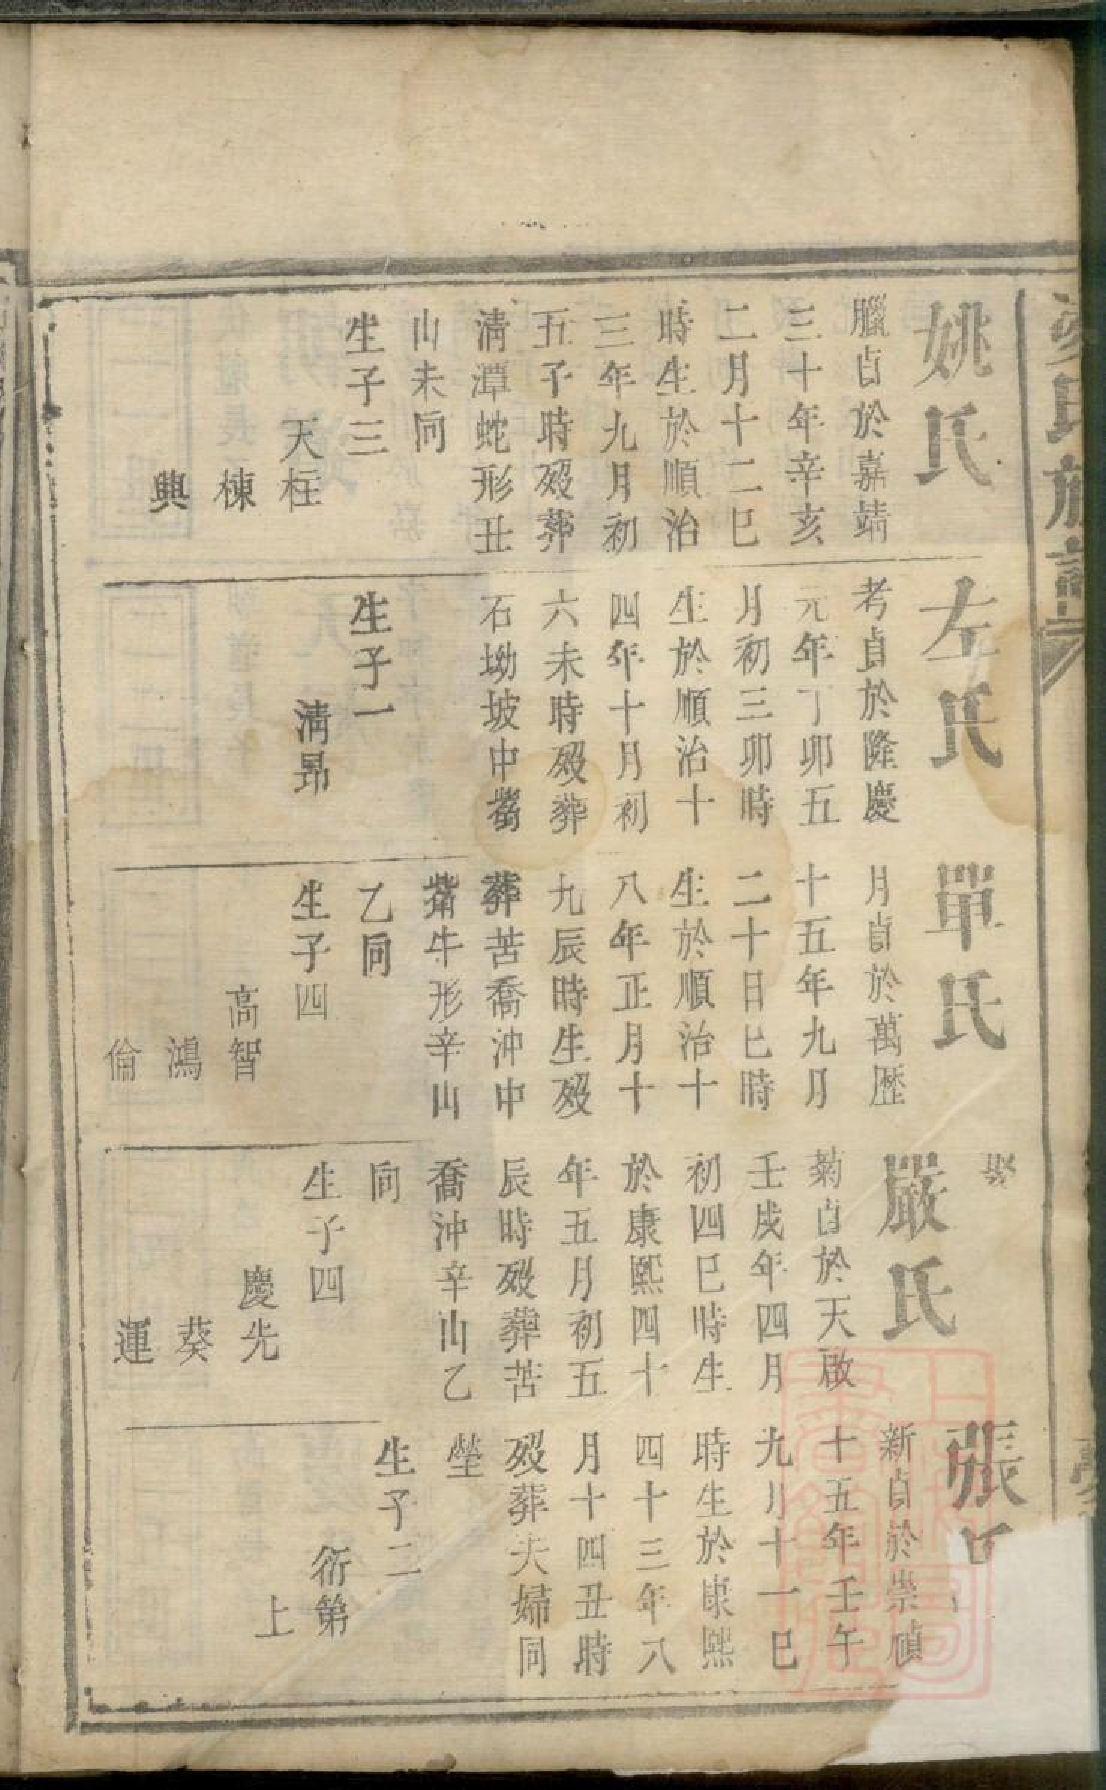 氏族譜
姚氏
臘貞於嘉靖
三十年辛亥
二月十二巳
時生於順治
三年九月初
五子時歿葬
清潭蛇形丑
山未向
生子三
天柱
棟
興
左氏
考貞於隆慶
元年丁卯五
月初三卯時
生於順治十
四年十月初
六未時歿葬
石坳坡中嘴
生子一
清昂
單氏
月貞於萬歷
十五年九月
二十日巳時
生於順治十
八年正月十
九辰時生歿
葬苦喬沖中
嘴牛形辛山
乙向
生子四
高智
鴻
倫
娶
嚴氏
菊貞於天啟
壬戌年四月
初四巳時生
於康熙四十
年五月初五
辰時歿葬苦
喬沖辛山乙
向
生子四
慶先
葵
運
張氏
新貞於崇禎
十五年壬午
九月十一巳
時生於康熙
四十三年八
月十四丑時
歿葬夫婦同
塋
生子二
衍第
上